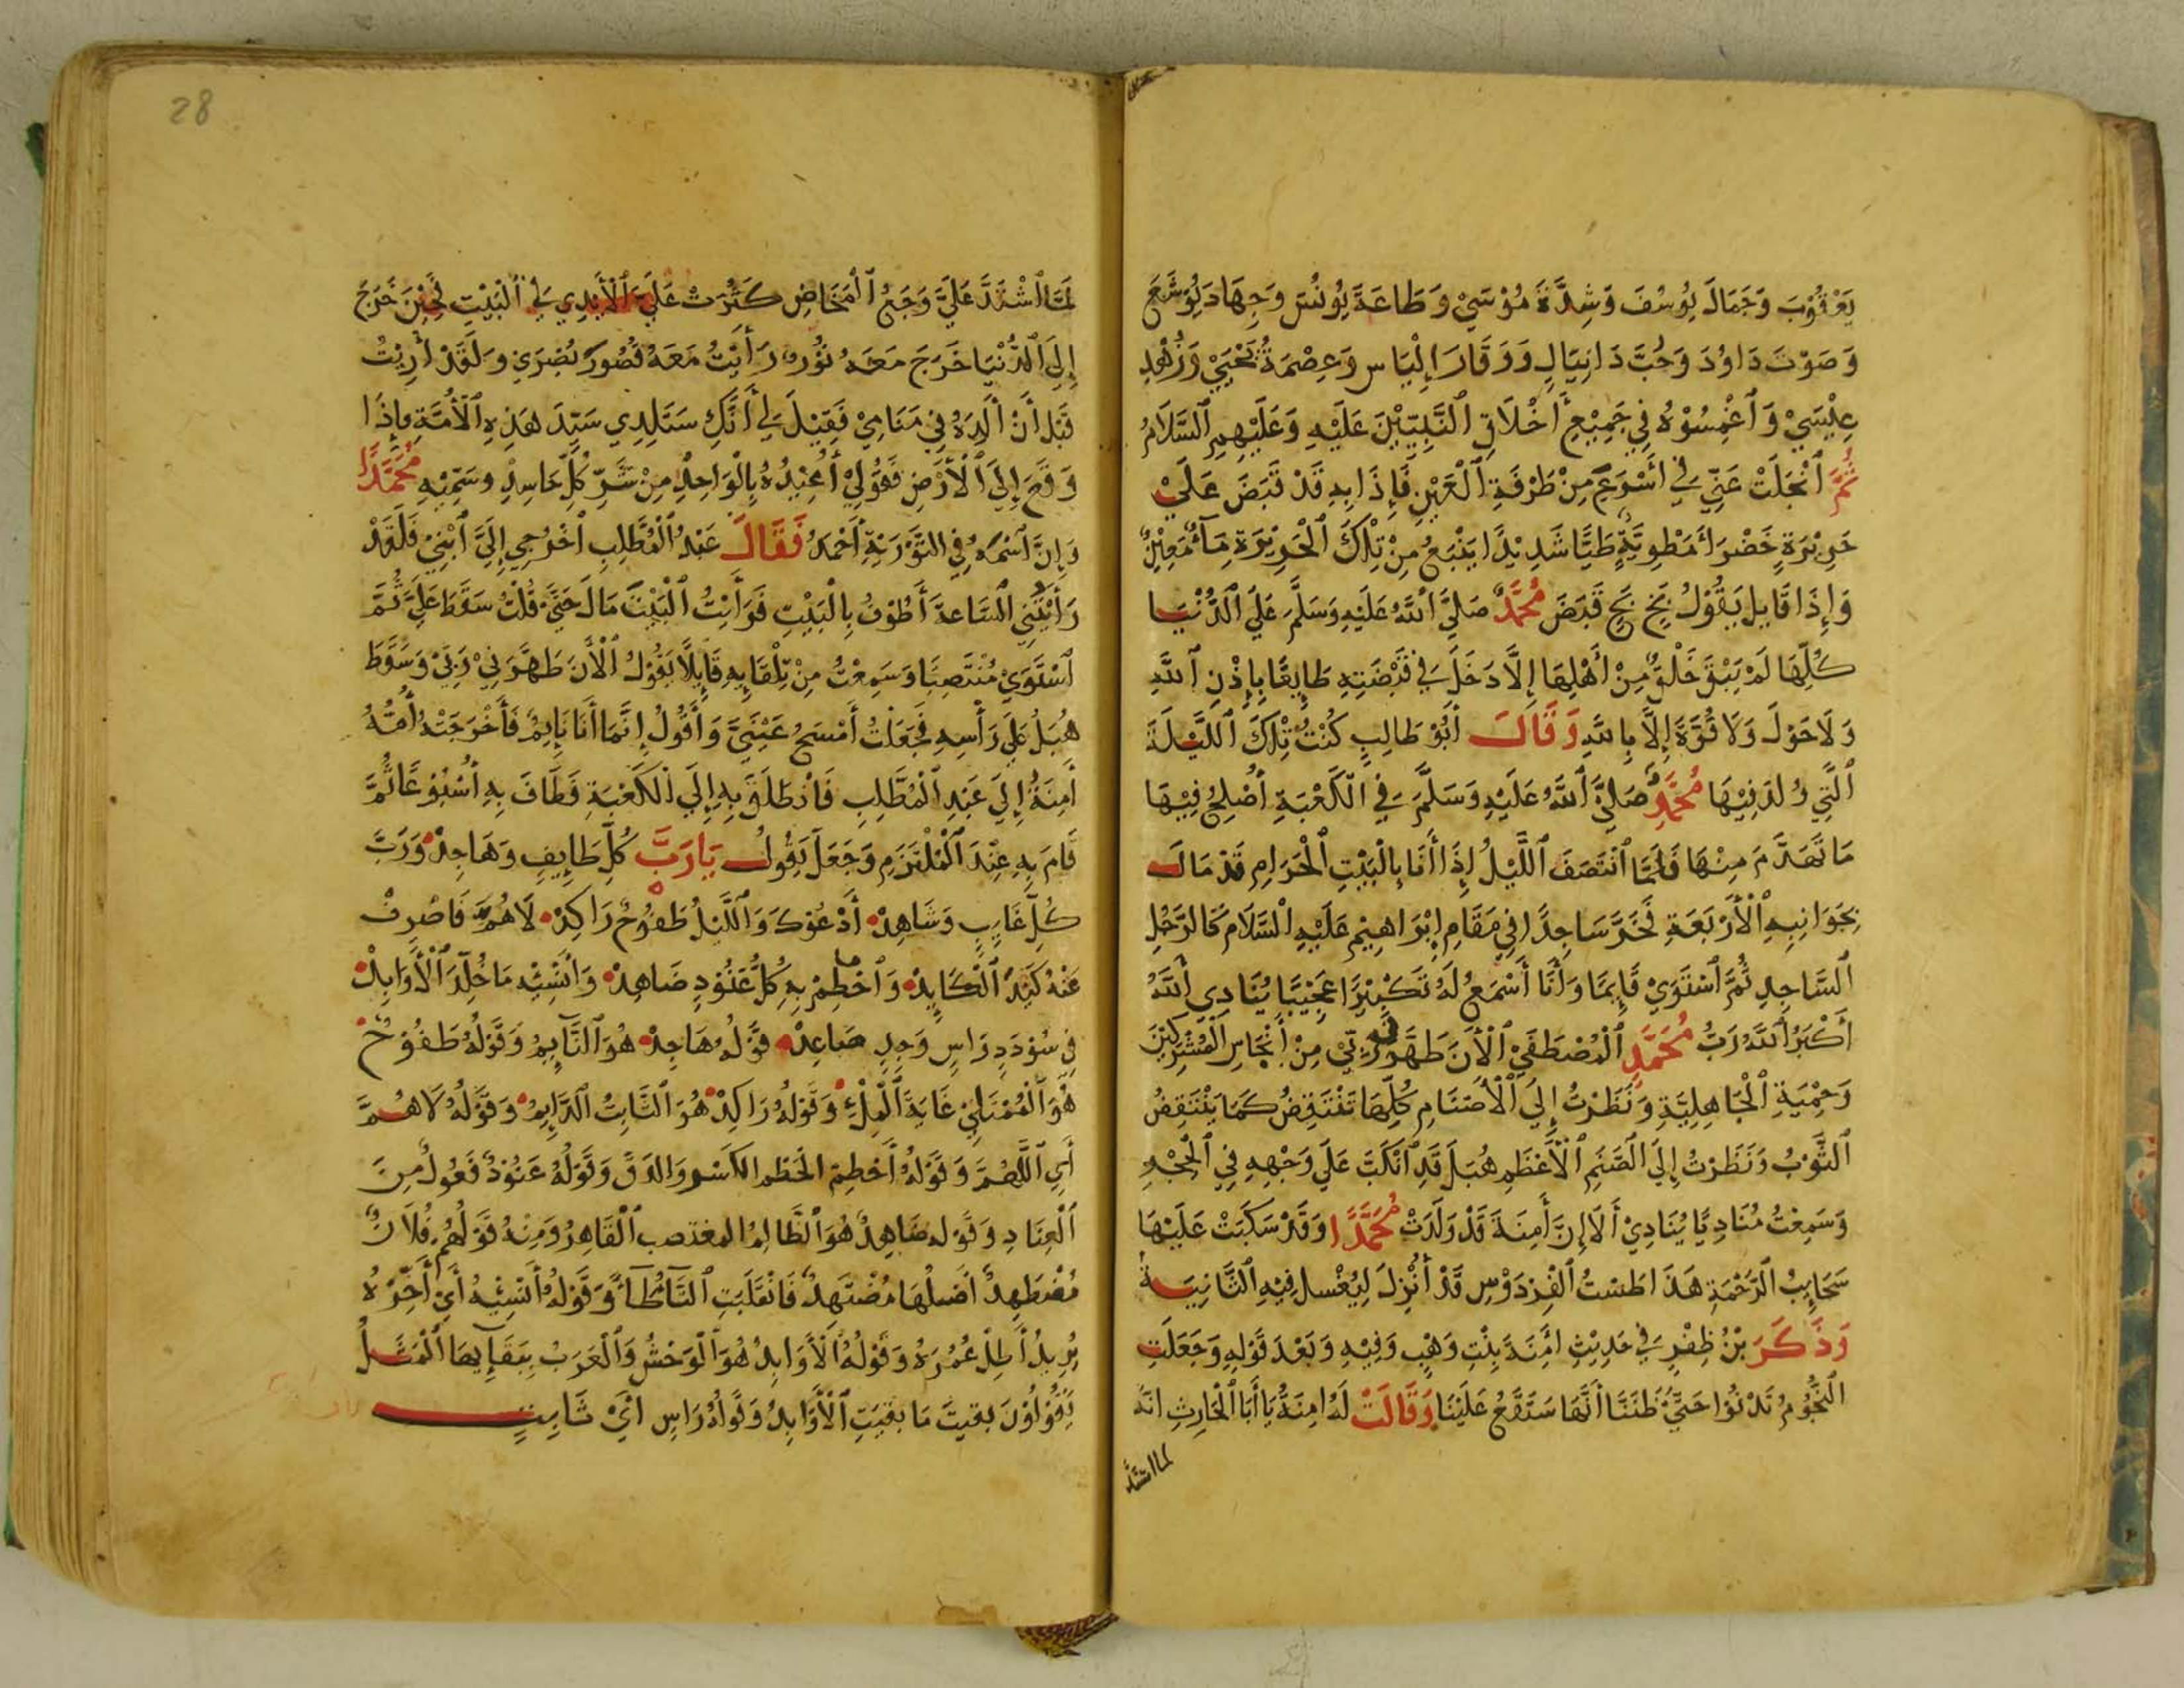 يَعْقُوْبَ وَجَمَالَ يُوسُفَ وَشِدَّةَ مُوْسَيْ وَطَاعَةَ يُونُسَ وَجِهَادَ يُوْشَعَ
وَصَوْتَ دَاوُدَ وَحُبَّ دَانِيَالِ وَوَقَارَ اِلْيَاس وَعِصْمَةُ يَحْيَيْ وَزُهْدِ
عِيْسَيْ وَاَغْمِسُوْهُ فِي جَمِيْعِ أَخْلَاقِ اَلنَّبِيّيْنَ عَلَيْهِ وَعَلَيْهِمِ اَلسَّلَامُ
ثُمَّ اَنْجَلَتْ عَنِّي فِي اَسْرَعِ مِنْ طَرْفَةِ اَلْعَيْنِ فَإِذَا بِهِ قَدْ قَبَضَ عَلَيْ
حَرِيْرَةٍ خَضْرَا مَطْوِيَّةٍ طَيًّا شَدِيْدًا يَنْبَعُ مِنْ تِلْكَ اَلْحَرِيْرَةِ مَآءٌ مَعِيْنٌ
وَإِذَا قَايِل يَقُوْلُ بَخٍ بَخٍ قَبَضَ مُحَمَّدٌ صَلَيَّ اَللَّهُ عَلَيْهِ وَسَلَّمَ عَلَيَ اَلدُّنْيَا
كُلِّهَا لَمْ يَبْقَ خَلْقٌ مِنْ أَهْلِهَا إِلَّا دَخَلَ فِي قَبْضَتِهِ طَايِعًا بِإِذْنِ اَللَّهِ
وَلَا حَوْلَ وَلَا قُوَّةَ إِلَّا بِاللَّهِ وَقَالَ أَبُوْ طَالِبٍ كُنْتُ تِلْكَ اَللَّيْلَةَ
اَلَّتِي وُلِدَ فِيْهَا مُحَمَّدٌ صَلَيَّ اَللَّهُ عَلَيْهِ وَسَلَّمَ فِي الْكَعْبَةِ أُصْلِحُ فِيْهَا
مَا تَهَدَّمَ مِنْهَا فَلَمَّا اَنْتَصَفَ اَللَّيْلُ إِذَا أَنَا بِالْبَيْتِ اَلْحَرَامِ قَدْ مَالَ
بِجَوَانِبِهِ اَلْأَرْبَعَةِ فَخَرَّ سَاجِدًا فِي مَقَامِ إِبْرَاهِيْمِ عَلَيْهِ اَلسَّلَامُ كَالرَّجُلِ
اَلسَّاجِدِ ثُمَّ اَسْتَوَيْ قَايِمًا وَأَنَا أَسْمَعُ لَهُ تَكْبِيْرًا عَجِيْبًا يُنَادِي أَللَّهُ
أَكْبَرُ أَللَّهُ رَبُّ مُحَمَّدِ اَلْمُصْطَفَيْ اَلْأَنَ طَهَّرَنِي رَبِّي مِنْ أَنْجَاسِ اَلْمُشْرِكِيْنَ
وَحِمْيَةِ اَلْجَاهِلِيَّةِ وَنَظَرْتُ إِلَيَ اَلْأَصْنَامِ كُلِّهَا تَنْتَفِضُ كَمَا يَنْتَفِضُ
اَلثَّوْبُ وَنَظَرْتُ إِلَيَ اَلصَّنَمِ اَلْأَعْظَمِ هُبَلَ قَدِ اَنْكَبَّ عَلَيَ وَجْهِهِ فِي اَلْحِجْرِ
وَسَمِعْتُ مُنَادِيًا يُنَادِيْ أَلَا إِنَّ أَمِنَةَ قَدْ وَلَدَتْ مُحَمَّدًا وَقَدْ سَكَبَتْ عَلَيْهَا
سَحَايِبُ اَلرَّحْمَةِ هَذَا طَسْتُ اَلْفِرْدَوْسِ قَدْ أُنْزِلَ لِيُغْسلَ فِيْهِ اَلثَّانِيَةُ
وَذَكَرَ بْنُ ظِفْرٍ فِي حَدِيْثِ اَمِنَةَ بِنْتِ وَهْبٍ وَفِيْهِ وَبَعْدَ قَوْلِهِ وَجَعَلَتِ
اَلنُّجُوْمُ تَدْنُوْا حَتَّيَ ظَنَنَّا أَنَّهَا سَتَقَعُ عَلَيْنَا وَقَالَتْ لَهُ اَمِنَةُ يَا أَبَا اَلْحَارِثِ انَّهُ
لما اشتد
28
لَمَّا اَشْتَدَّ عَلَيَّ وَجَعُ اَلْمَخَاضِ كَثُرَتْ عَلَيَّ اَلْأَيْدِي فِي اَلْبَيْتِ فَحِيْنَ خَرَجَ
إِلَيَ اَلدُّنْيَا خَرَجَ مَعَهُ نُوْرٌ رَأَيْتُ مَعَهُ قُصُورَ بُصْرَيِ وَلَقَدْ أُرِيْتُ
قَبْلَ أَنْ أَلِدَهُ فِي مَنَامِيْ فَقِيْلَ لِي أَنَّكِ سَتَلِدِي سَيِّدَ هَذِهِ اَلْأُمَّةِ وَإِذَا
وَقَعَ إِلَيَ اَلْأَرْضِ فَقُوْلِيْ أُعِيْذُهُ بِالْوَاحِدِ مِنْ شَرِّ كُلِّ حَاسِدٍ وسَمِّيْهِ مُحَمَّدًا
وَإِنَّ اَسْمَهُ فِي التَّوْرَيةِ أَحْمَدُ فَقَالَ عَبْدُ اَلْمُطَّلِبِ اَخْرُجِي إِلَيَّ اَبْنِيْ فَلَقَدْ
رَأَيْتُنِي اَلسَّاعةَ أَطُوْفُ بِالْبَيْتِ فَرَأَيْتُ اَلْبَيْتَ مَالَ حَتَّيَ قُلْتُ سَقَطَ عَلَيَّ ثُمَّ
اَسْتَوَيْ مُنْتَصِبًا وَسَمِعْتُ مِنْ تِلْقَايِهِ قَايِلًا يَقُوْلُ اَلْأَنَ طَهَّرَنِيْ رَبِّيْ وَسَقَطَ
هُبَلُ عَلَي رَأْسِهِ فَجَعَلْتُ أَمْسَحُ عَيْنَيَّ وَأَقُوْلُ إِنَّمَا أَنَا نَايِمٌ فَأَخْرَجَتْهُ أُمُّهُ
أَمِنَةُ إِلَيَ عَبْدِ اَلْمُطَّلِبِ فَانْطَلَقَ بِهِ إِلَيَ اَلْكَعْبَةِ فَطَافَ بِهِ أُسْبُوْعًا ثُمَّ
قَامَ بِهِ عِنْدَ اَلْمُلْتَزَمِ وَجَعَلَ يَقُوْلُ يَا رَبَّ كُلِّ طَايِفٍ وَهَاجِدْ وَرَبَّ
كُلِّ غَايِبٍ وَشَاهِدْ أَدْعُوْكَ وَاَللَّيْلُ طَفُوْحٌ رَاكِدْ لَاهُمَّ فَاصْرِفْ
عَنْهُ كَيْدَ اَلْكَايِدْ وَاَحْطِمْ بِهِ كُلَّ عَنُوْدٍ ضَاهِدْ وَاَنْسِيْه مَا خُلِّدَ اَلْأَوَابِدْ
فِي سُوْدَدِ رَاسٍ وَجِدٍ صَاعِدْ قَوْلُهُ هَاجِدْ هُوَ اَلنَّآيِمُ وَقَوْلُهُ طَفُوْحٌ
هُوَ اَلْمُمْتَلِيْ غَايَةَ اَلْمِلْءِ وَقَوْلهُ رَاكِدْ هُوَ اَلثَّابِتُ اَلدَّايِمُ وَقَوْلُهُ لَاهُمَّ
أَيِ اَللَّهُمَّ وَقَوْلهُ أَحْطِمْ الحَطْم الكَسْر وَالدَقّ وَقَوْلُهُ عَنُوْدٌ فَعُولٌ مِنَ
اَلْعِنَادِ وَقَوْله ضَاهِدٌ هُوَ اَلظَّالِمُ المغتصب اَلْقَاهِرُ وَمِنْهُ قَوْلُهُمْ فُلَانٌ
مُضْطَهِدٌ أَصْلُهَا مُضْتَهِدٌ فَانْقَلَبَتِ اَلتَّآءُ طَآءً وَقَوْلهُ أَنْسِيْهُ أَيْ أَخِّرْهُ
يُرِيدُ أَطِلْ عُمُرَهُ وَقَوْلُهُ اَلْأَوَابِدُ هُوَ اَلْوَحْشُ وَاَلْعَرَبُ بِبَقَآيِهَا اَلْمَثَلُ
يَقُوْلُوْنَ بقيتَ مَا بَقِيَتِ اَلْأَوَابِدُ وَقَوْلُهُ رَاسٍ اَيْ ثَابِتٍ